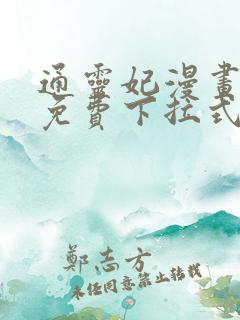 通靈妃漫畫
免費下拉式
鄭志方
未經同意禁止轉載